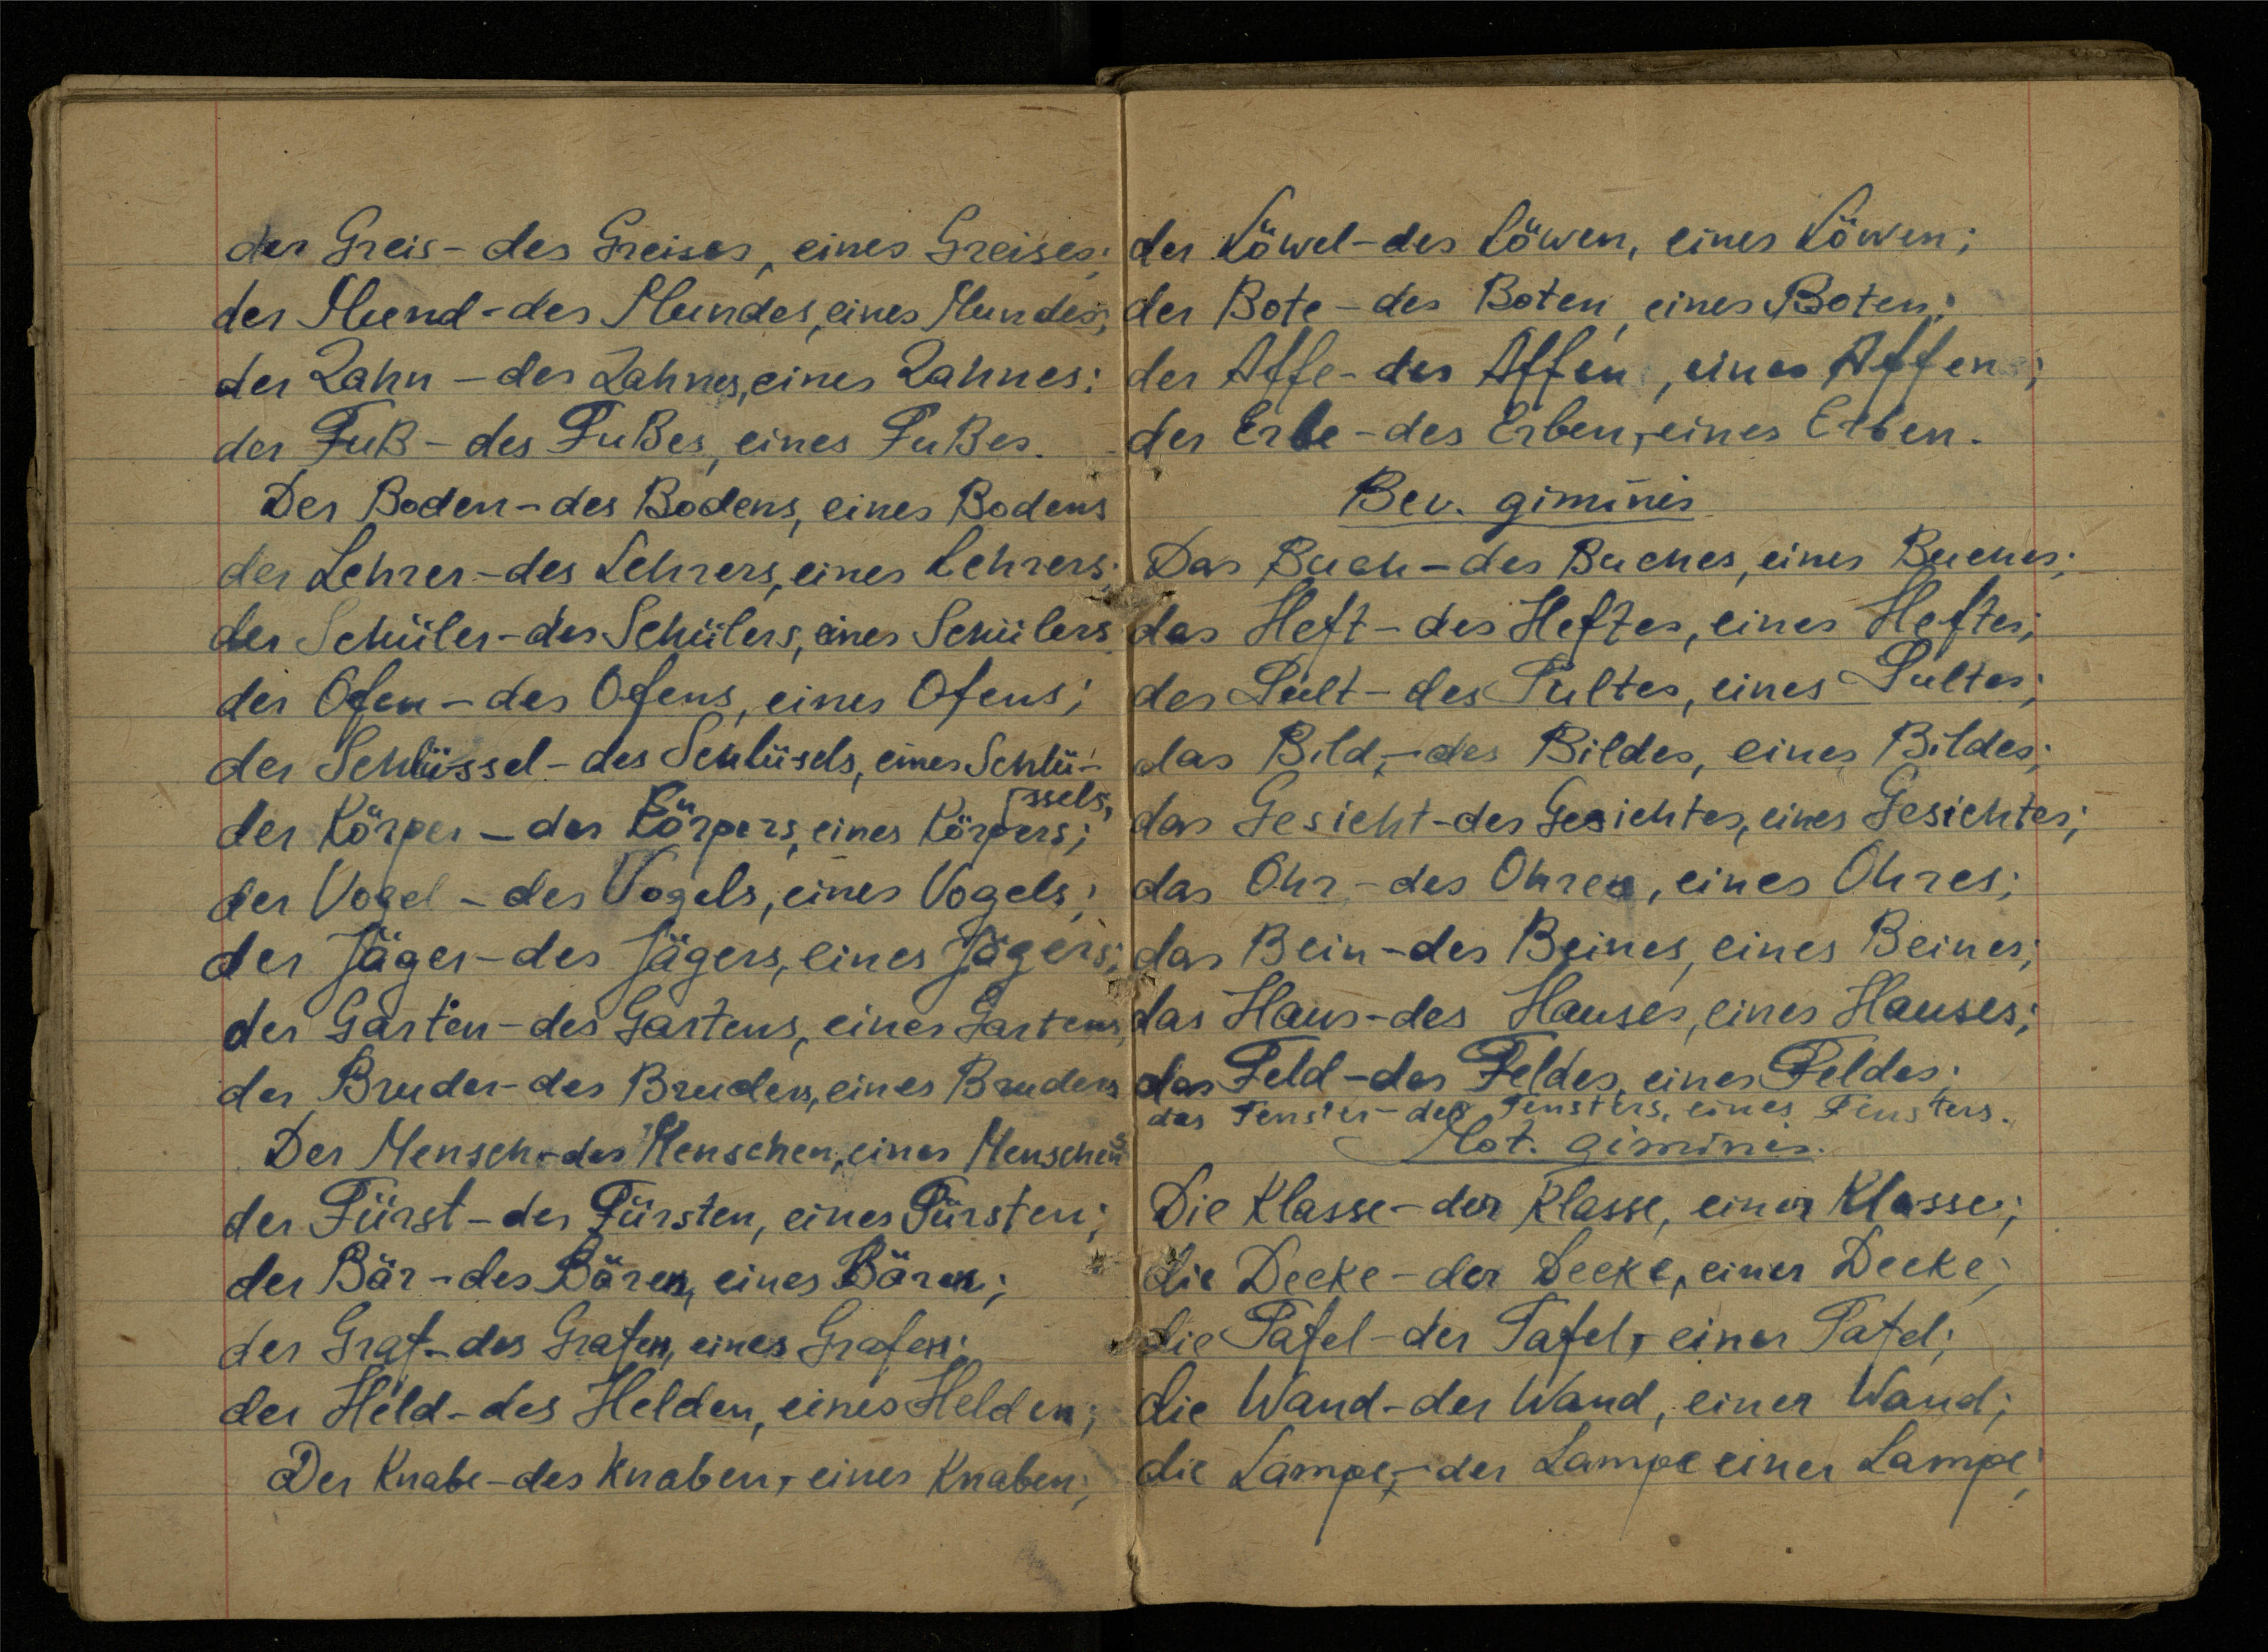 der Greis - des Greises, eines Greises;
der Mund - des Mundes, eines Mundes;
der Zahn - des Zahnes, eines Zahnes;
der Fuß - des Fußes, eines Fußes.
Der Boden - des Bodens, eines Bodens
der Lehrer - des Lehrers, eines Lehrers;
der Schüler - des Schülers, eines Schülers
der Ofen - des Ofens, eines Ofens;
der Schlüssel - des Schlüsels, eines Schlü-
ssels,
der Körper - des Körpers, eines Körpers;
der Vogel - des Vogels, eines Vogels;
der Jäger - des Jägers, eines Jägers;
der Garten - des Gartens, eines Gartens,
der Bruder - des Bruders, eines Bruders
Der Mensch - des Menschen, eines Menschen
der Fürst - des Fürsten, eines Fürsten;
der Bär - des Bären, eines Bären;
der Graf - des Grafen, eines Grafen;
der Held - des Helden, eines Helden;
Der Knabe - des Knaben, eines Knaben;
der Löwe - des Löwen, eines Löwen;
der Bote - des Boten, eines Boten;
der Affe - des Affen, eines Affen;
der Erbe - des Erben, eines Erben.
Bev. giminės
Das Buch - des Buches, eines Buches;
das Heft - des Heftes, eines Heftes;
das Pult - des Pultes, eines Pultes;
das Bild, - des Bildes, eines Bildes;
das Gesicht - des Gesichtes, eines Gesichtes;
das Ohr - des Ohres, eines Ohres;
das Bein - des Beines, eines Beines;
das Haus - des Hauses, eines Hauses;
das Feld - des Feldes, eines Feldes;
das Fenster - des Fensters, eines Fensters.
Mot. giminės.
Die Klasse - der Klasse, einer Klasse;
die Decke - der Decke, einer Decke;
die Tafel - der Tafel, einer Tafel;
die Wand - der Wand, einer Wand;
die Lampe, - der Lampe einer Lampe;